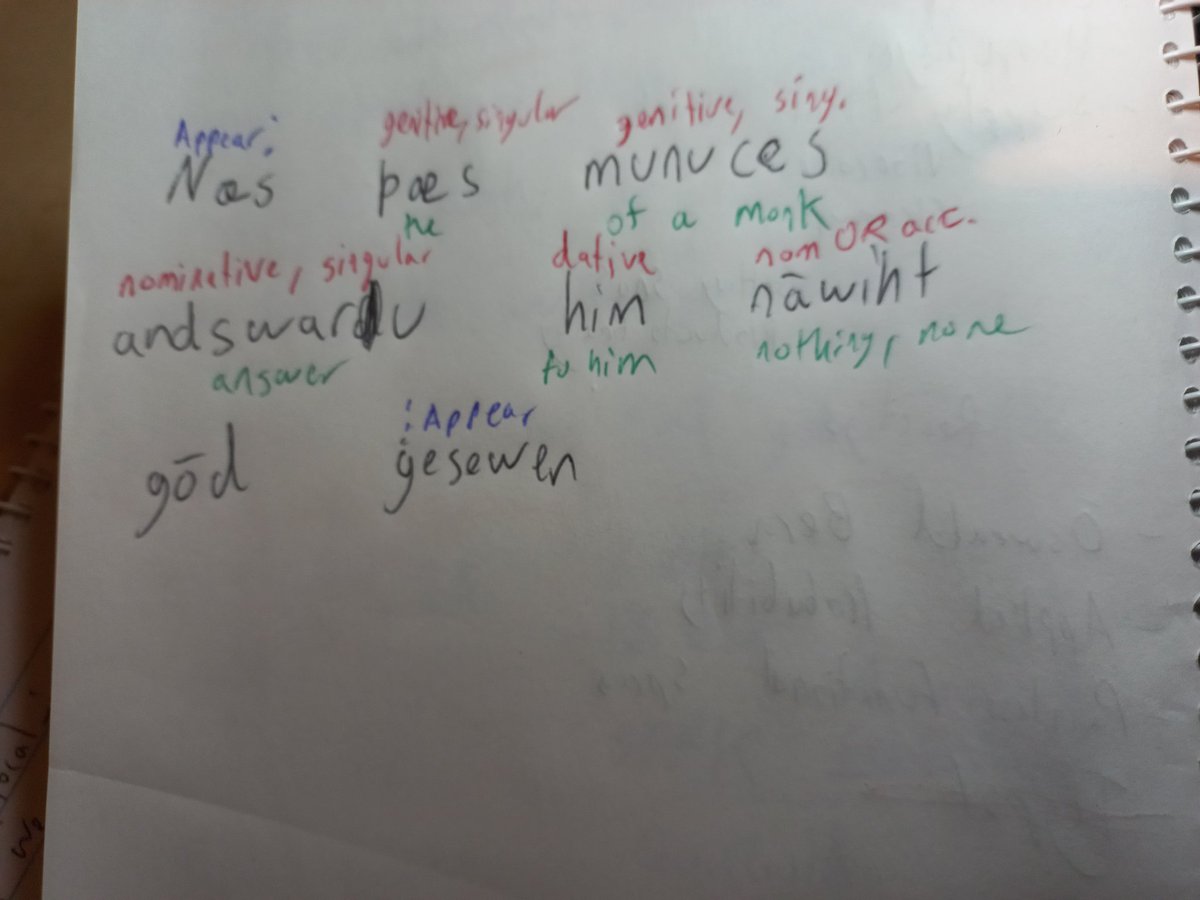 Appear:
genitive, singular
genitive, sing.
Næs þæs munuces
the
of a monk
nominative, singular
dative
nom OR acc.
andswaru him nāwiht
answer
to him
nothing, none
: Appear
gōd ġesewen